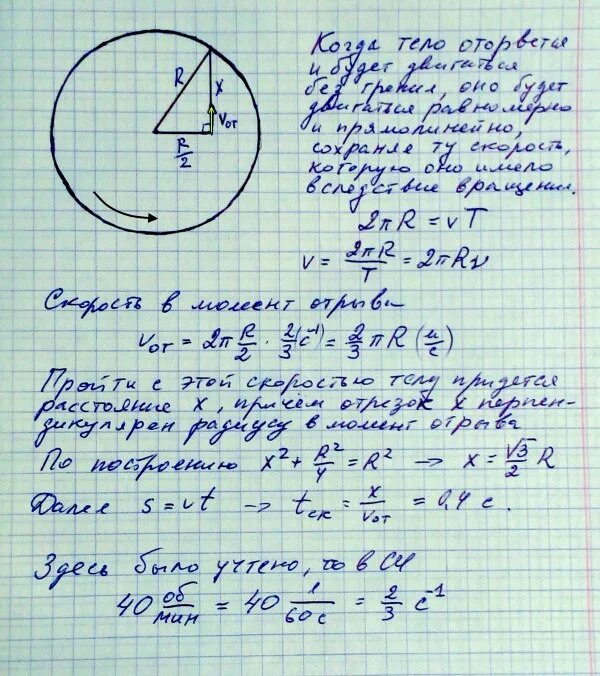 R
x
v_от
R/2
Когда тело оторвется
и будет двигаться
без трения, оно будет
двигаться равномерно
и прямолинейно,
сохраняя ту скорость,
которую оно имело
вследствие вращения.
2πR = vT
v = 2πR/T = 2πRν
Скорость в момент отрыва
v_от = 2π R/2 · 2/3 (с⁻¹) = 2/3 πR (м/с)
Пройти с этой скоростью телу придется
расстояние x, причем отрезок x перпен-
дикулярен радиусу в момент отрыва
По построению x² + R²/4 = R² → x = √3/2 R
Далее s = vt → t_ск = x/v_от = 0,4 с.
Здесь было учтено, что в СИ
40 об/мин = 40 1/60с = 2/3 с⁻¹